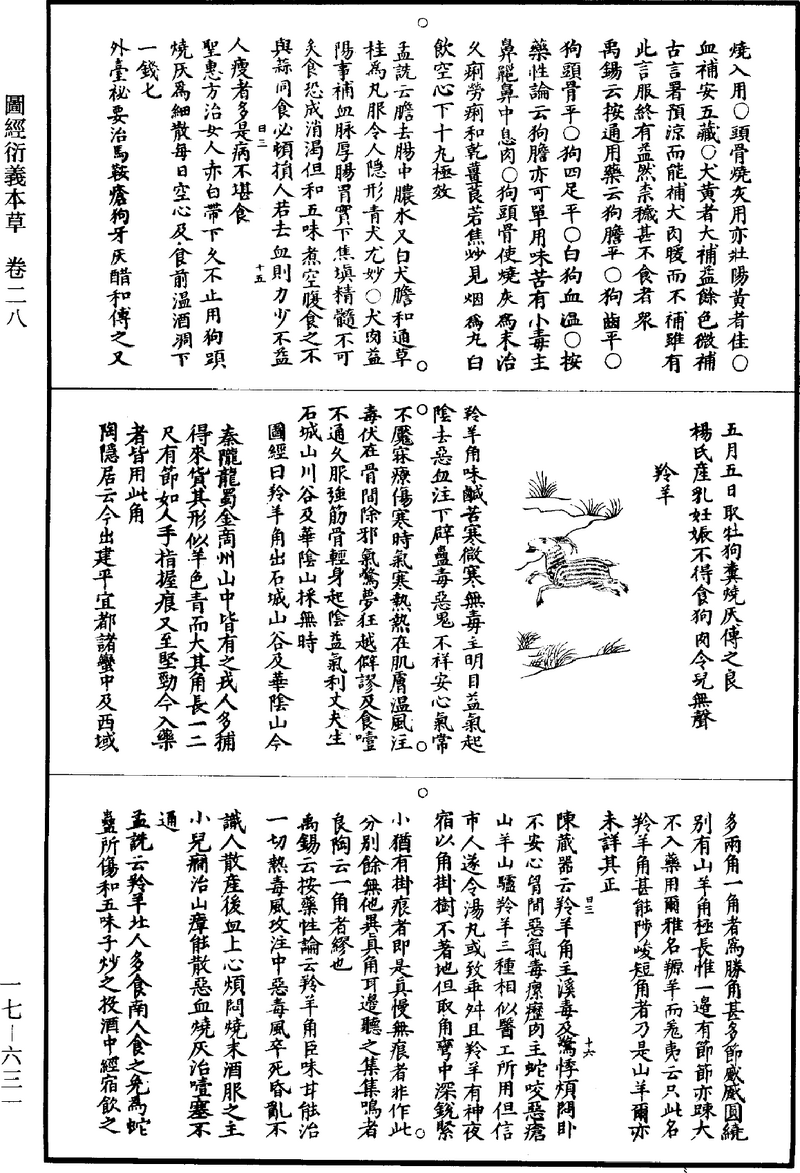 圖經衍義本草　卷二八
燒入用○頭骨燒灰用亦壯陽黃者佳○
血補安五藏○犬黃者大補益餘色微補
古言署預涼而能補犬肉暖而不補雖有
此言服終有益然素穢甚不食者衆
禹錫云按通用藥云狗膽平○狗齒平○
狗頭骨平○狗四足平○白狗血溫○按
藥性論云狗膽亦可單用味苦有小毒主
鼻齆鼻中息肉○狗頭骨使燒灰爲末治
久痢勞痢和乾薑莨若焦炒見烟爲丸白
飲空心下十丸極效
孟詵云膽去腸中膿水又白犬膽和通草
桂爲丸服令人隱形青犬尤妙○犬肉益
陽事補血脉厚腸胃實下焦塡精髓不可
炙食恐成消渴但和五味煮空腹食之不
與蒜同食必頓損人若去血則力少不益
人瘦者多是病不堪食
聖惠方治女人赤白帶下久不止用狗頭
燒灰爲細散每日空心及食前溫酒調下
一錢七
外臺祕要治馬鞍瘡狗牙灰醋和傅之又
曰二
十五
五月五日取牡狗糞燒灰傅之良
楊氏産乳妊娠不得食狗肉令兒無聲
羚羊
羚羊角味鹹苦寒微寒無毒主明目益氣起
陰去惡血注下辟蠱毒惡鬼不祥安心氣常
不魘寐療傷寒時氣寒熱熱在肌膚溫風注
毒伏在骨間除邪氣驚夢狂越僻謬及食噎
不通久服強筋骨輕身起陰益氣利丈夫生
石城山川谷及華陰山採無時
圖經曰羚羊角出石城山谷及華陰山今
秦隴龍蜀金商州山中皆有之戎人多捕
得來貨其形似羊色青而大其角長一二
尺有節如人手指握痕又至堅勁今入藥
者皆用此角
陶隱居云今出建平宜都諸蠻中及西域
多兩角一角者爲勝角甚多節蹙蹙圓繞
別有山羊角極長惟一邊有節節亦踈大
不入藥用爾雅名羱羊而羗夷云只此名
羚羊角甚能陟峻短角者乃是山羊爾亦
未詳其正
陳藏器云羚羊角主溪毒及驚悸煩悶卧
不安心胷間惡氣毒瘰癧肉主蛇咬惡瘡
山羊山驢羚羊三種相似醫工所用但信
市人遂令湯丸或致乖舛且羚羊有神夜
宿以角掛樹不著地但取角彎中深銳緊
小猶有掛痕者即是真慢無痕者非作此
分別餘無他異真角耳邊聽之集集鳴者
良陶云一角者繆也
禹錫云按藥性論云羚羊角臣味甘能治
一切熱毒風攻注中惡毒風卒死昏亂不
識人散産後血上心煩悶燒末酒服之主
小兒癇治山瘴能散惡血燒灰治噎塞不
通
孟詵云羚羊北人多食南人食之免爲蛇
蟲所傷和五味子炒之投酒中經宿飲之
曰三
十六
一七—六三一